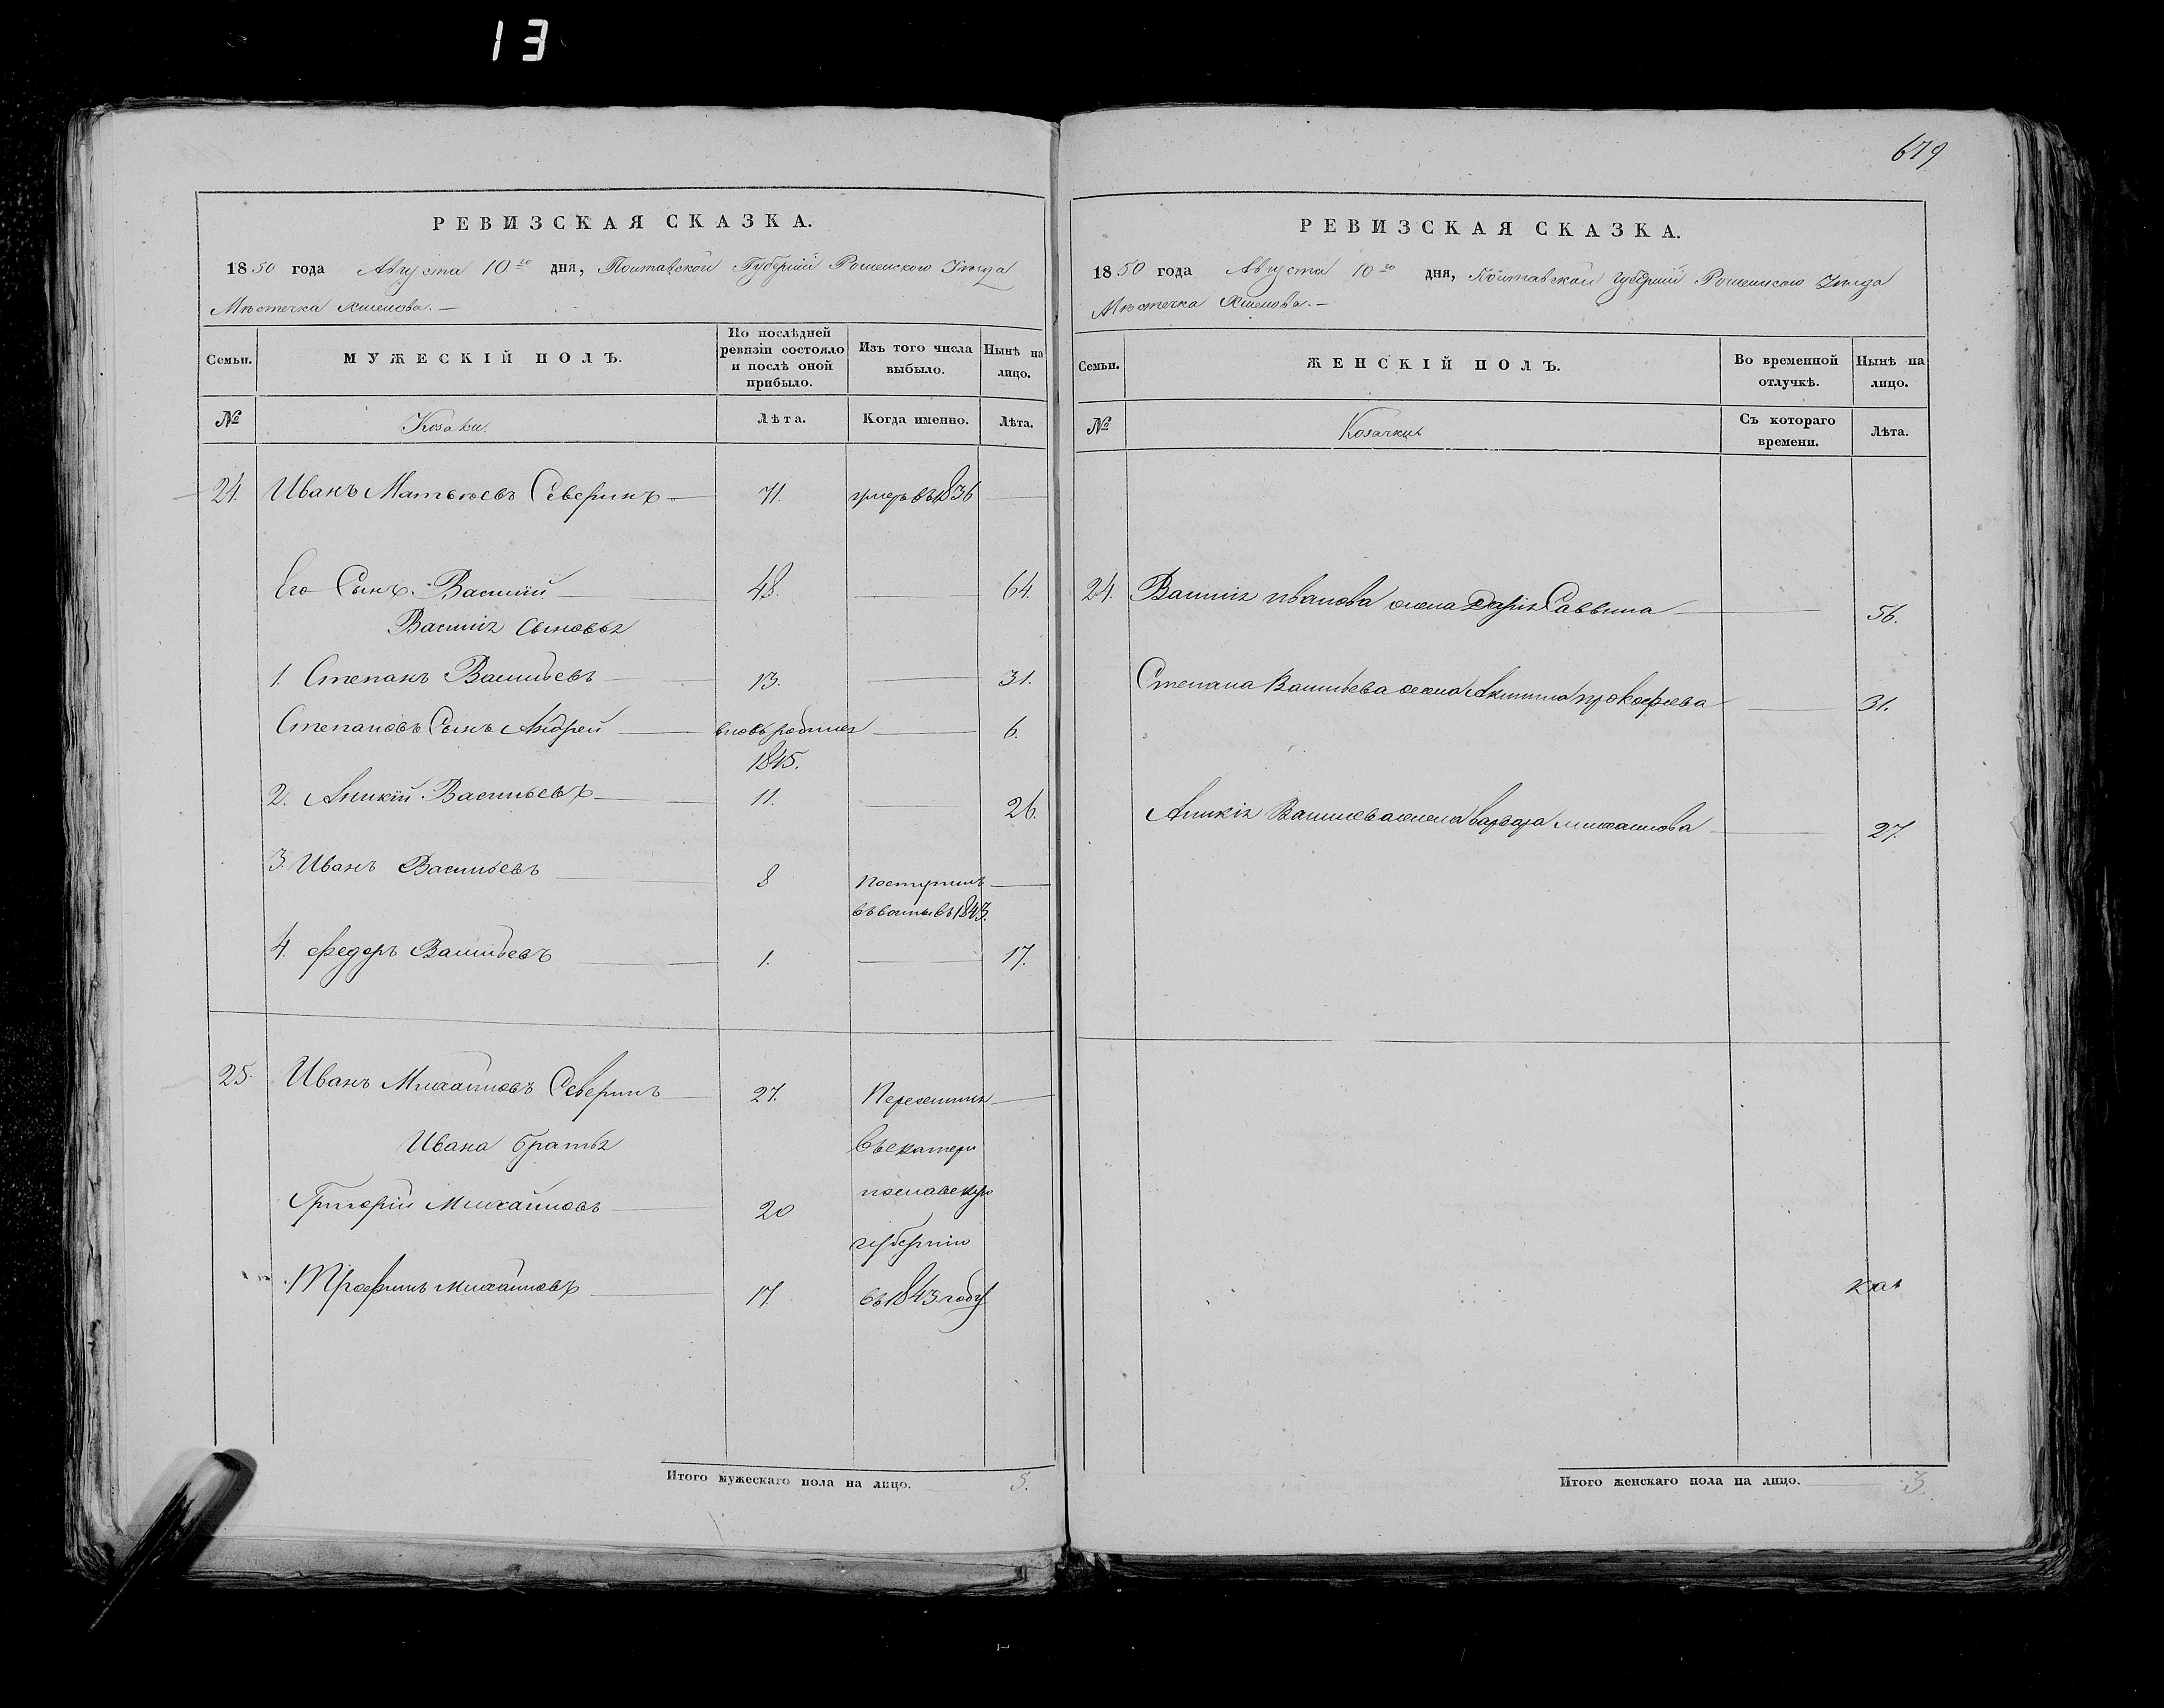 13
РЕВИЗСКАЯ СКАЗКА.
1850 года Августа 10го дня, Полтавской Губерніи Роменского Уѣзда
Мѣстечка
Семьи.
МУЖЕСКІЙ ПОЛЪ.
По послѣдней ревизіи состояло и послѣ оной прибыло.
Изъ того числа выбыло.
Нынѣ на лицо.
№
Козаки.
Лѣта.
Когда именно.
Лѣта.
24. Иванъ Матвѣевъ Северинъ 71. умеръ въ 1836
Его Сынъ Василій 48. 64.
Василія Сыновья
1. Степанъ Васильевъ 13. 31.
Степановъ Сынъ Андрей вновь родился 6.
1845.
2. Аникій Васильевъ 11. 26.
3. Иванъ Васильевъ 8 поступилъ
1843.
4. Федоръ Васильевъ 1. 17.
25. Иванъ Михайловъ Северинъ 27. Перечислены
Ивана братья въ екатери
Григорій Михайловъ 20 нославскую
губернію
Трофимъ Михайловъ 17. въ 1843 году
Итого мужескаго пола на лицо. 5.
679
РЕВИЗСКАЯ СКАЗКА.
1850 года Августа 10го дня, Полтавской Губерніи Роменского Уѣзда
Мѣстечка
Семьи.
ЖЕНСКІЙ ПОЛЪ.
Во временной отлучкѣ.
Нынѣ на лицо.
№
Козачки
Съ котораго времени.
Лѣта.
24. Василія Иванова жена Дарія Саввина 56.
Степана Васильева жена Акилина прокофіева 31.
Аникія Васильева жена варвара михайлова 27.
Итого женскаго пола на лицо. 3.